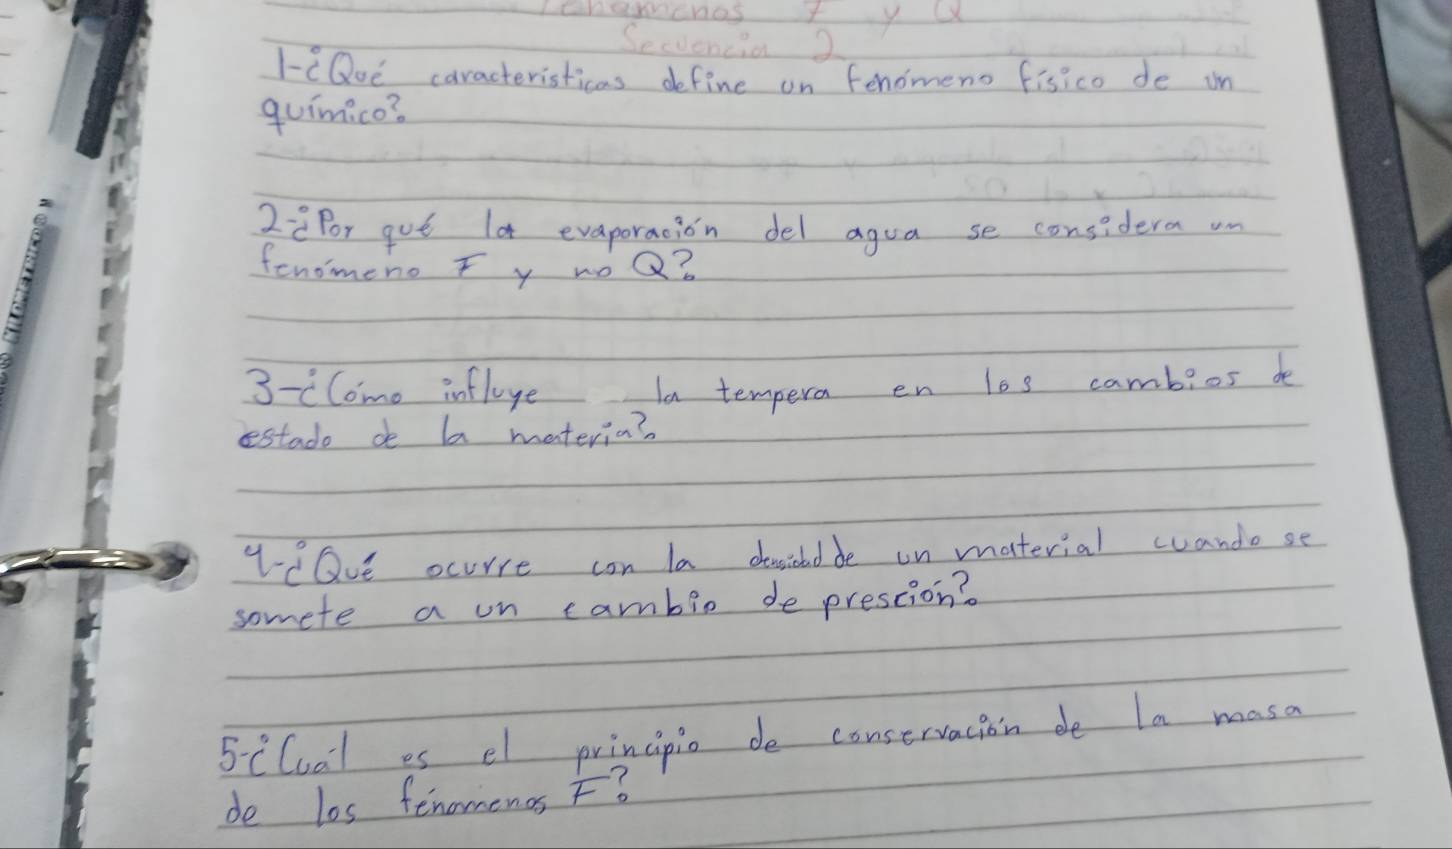 Fenomenos F y Q
Secuencia 2
1-¿Qué caracteristicas define un fenómeno físico de un
químico?
2-¿Por qué la evaporación del agua se considera un
fenómeno F y no Q?
3-¿Cómo influye la tempera en los cambios de
estado de la materia?
4-¿Qué ocurre con la densidad de un material cuando se
somete a un cambio de presción?
5-¿Cuál es el principio de conservación de la masa
de los fenomenos F?